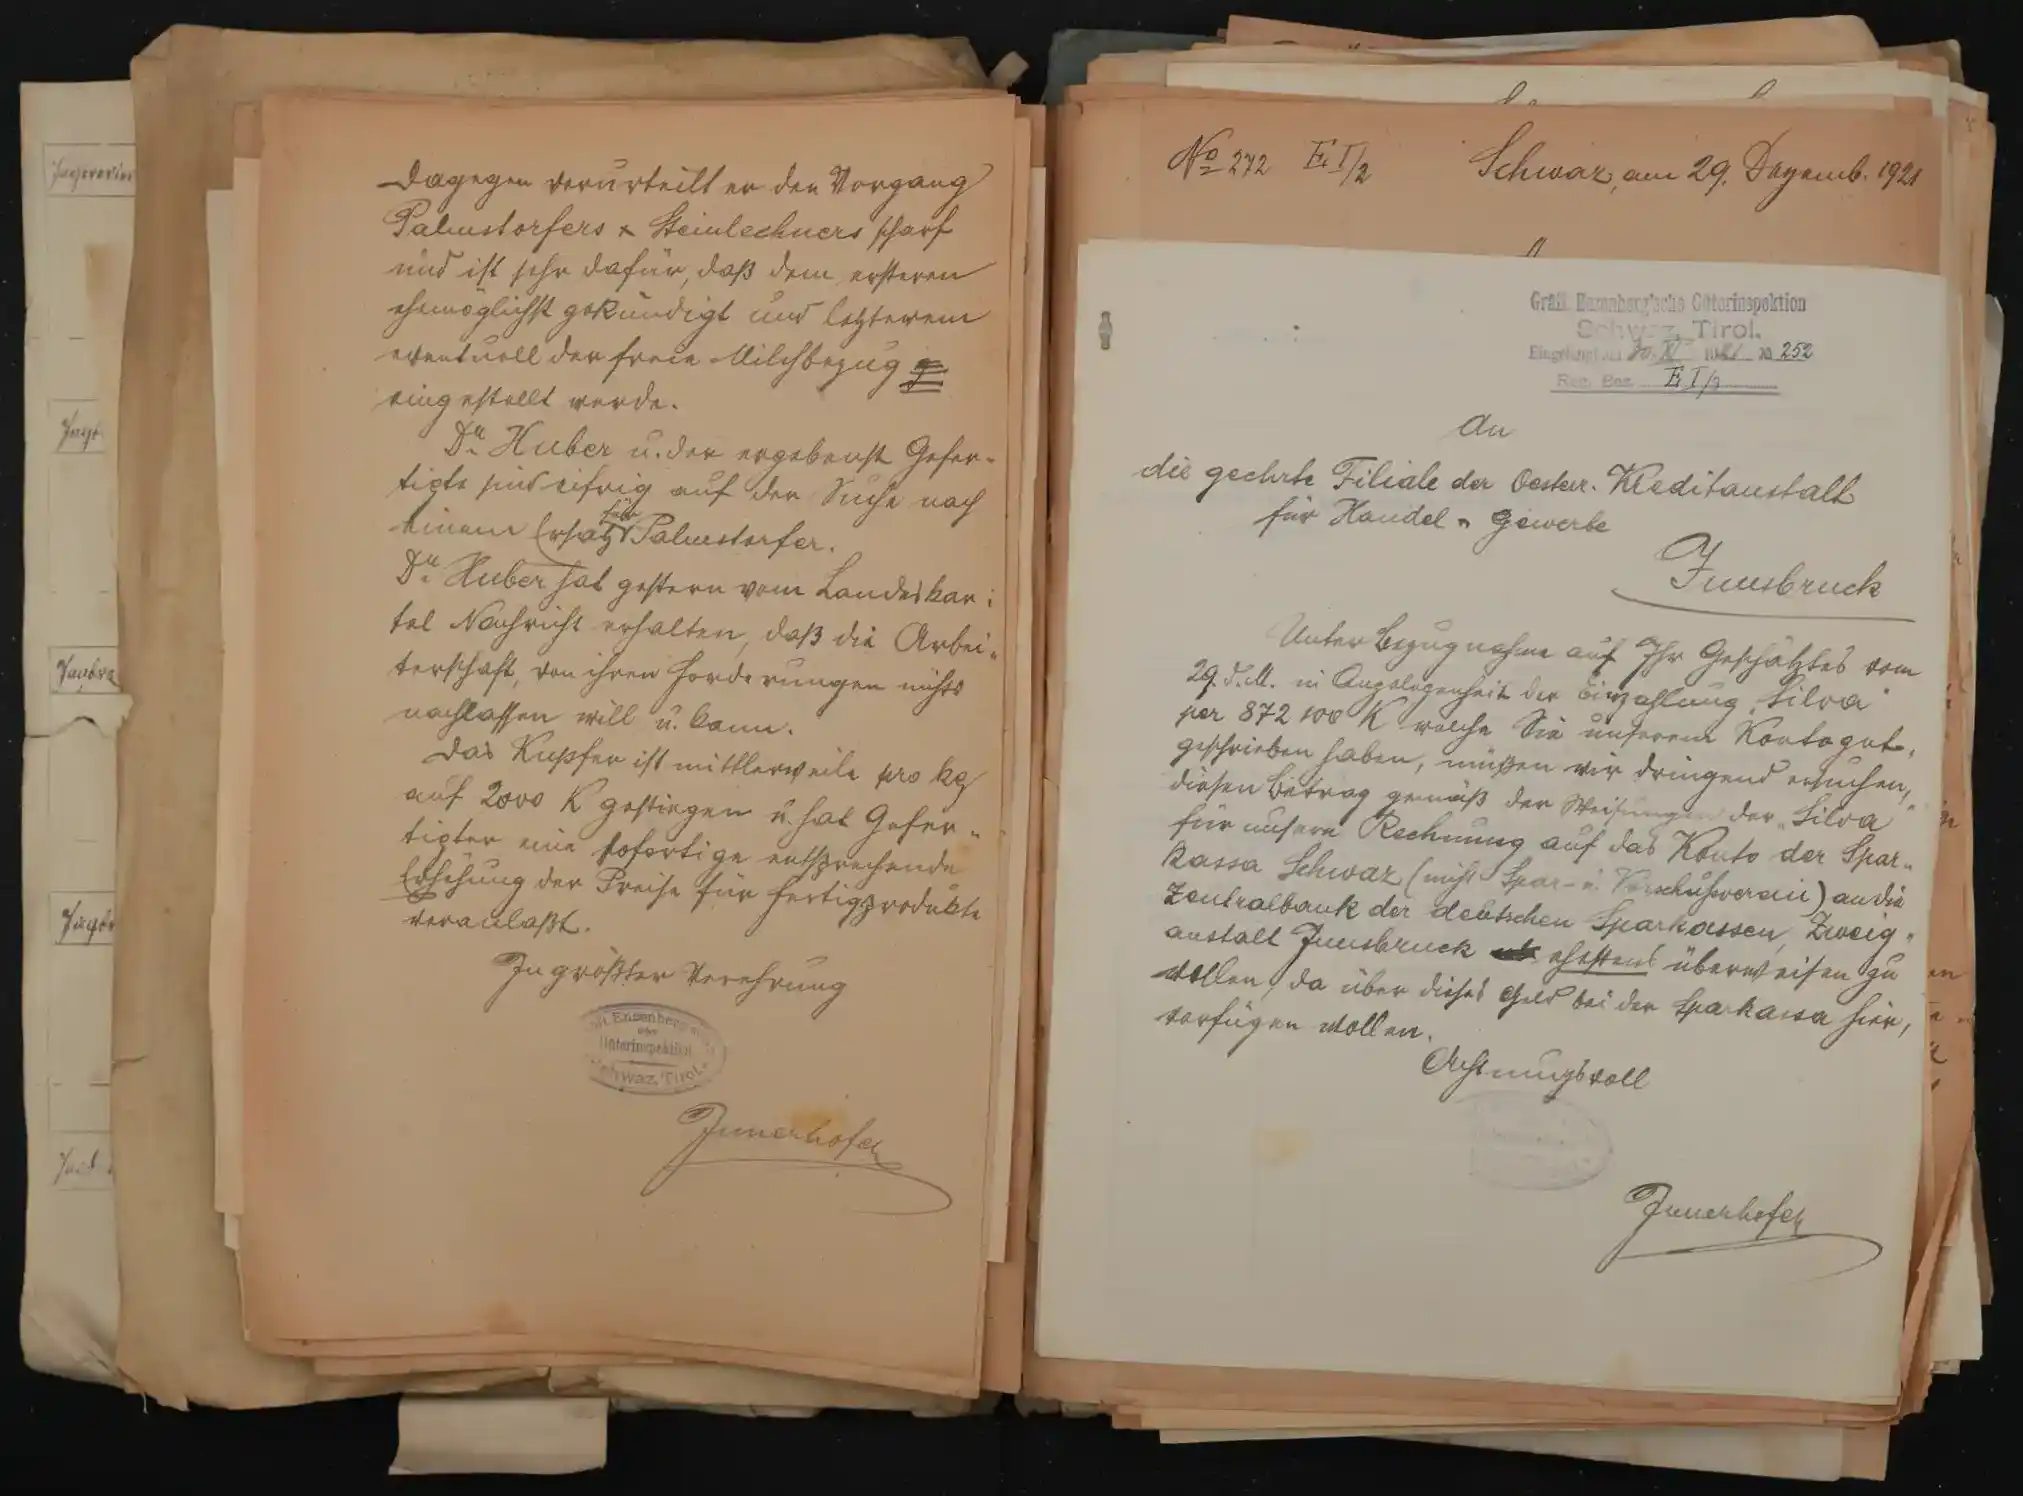 Dagegen verurteilt er den Vorgang
Palmstorfers & Steinlechners scharf
und ist sehr dafür, daß dem ersteren
ehemöglichst gekündigt und letzterem
eventuell der freie Milchbezug
eingestellt werde.
Dr. Huber u. der ergebenst Gefer-
tigte sind eifrig auf der Suche nach
einem Ersatz für Palmstorfer.
Dr. Huber hat gestern vom Landeskar-
tel Nachricht erhalten, daß die Arbei-
terschaft, von ihren Forderungen nichts
nachlassen will u. kann.
Das Kupfer ist mittlerweile pro kg
auf 2000 K gestiegen u. hat Gefer-
tigter eine sofortige entsprechende
Erhöhung der Preise für Fertigprodukte
veranlaßt.
In größter Verehrung
Enzenberg
Güterinspektion
Schwaz, Tirol.
Innerhofer
No 272 E I/2 Schwaz, am 29. Dezemb. 1921
Gräfl. Enzenberg'sche Güterinspektion
Schwaz, Tirol.
Eingelangt am 30. XII 1921 No 252
Reg. Bez. E I/2
An
die geehrte Filiale der Oesterr. Kreditanstalt
für Handel u. Gewerbe
Innsbruck
Unter Bezugnahme auf Ihr Geschätztes vom
29. d. M. in Angelegenheit der Einzahlung „Silva"
per 872 100 K welche Sie unserem Konto gut-
geschrieben haben, müßen wir dringend ersuchen,
diesen Betrag gemäß der Weisungen der „Silva"
für unsere Rechnung auf das Konto der Spar-
kassa Schwaz (nicht Spar- u. Vorschußverein) an die
Zentralbank der deutschen Sparkassen, Zweig-
anstalt Innsbruck ehestens überweisen zu
wollen, da über dieses Geld bei der Sparkassa hier,
verfügen wollen.
Achtungsvoll
Innerhofer